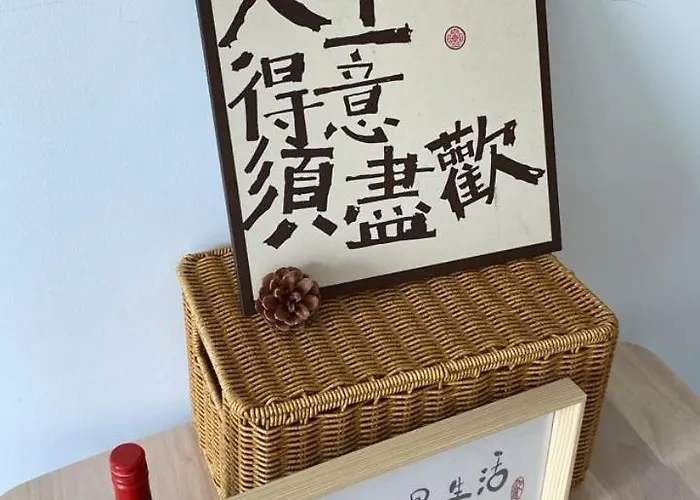 人生
得意
須盡歡
是生活